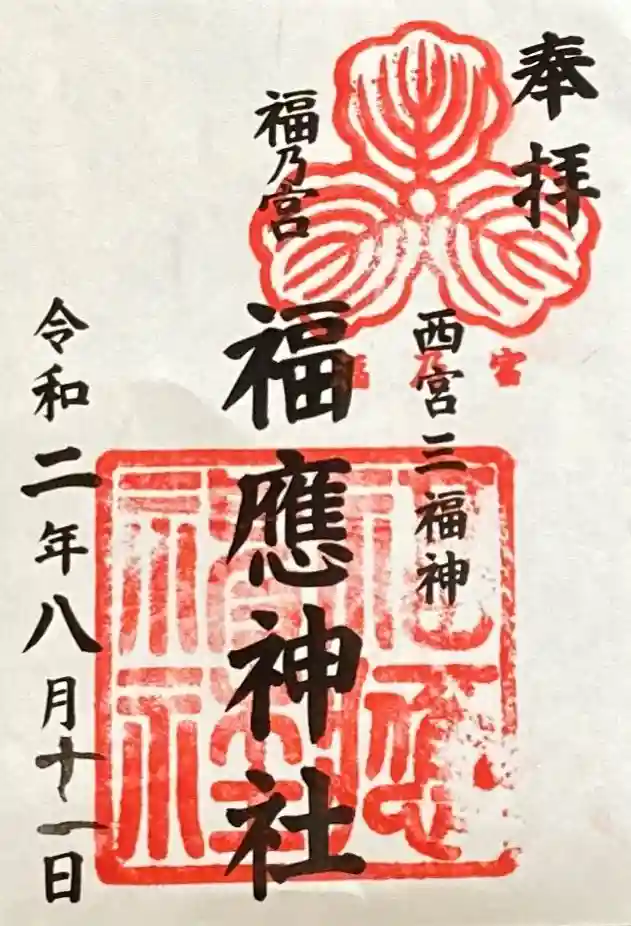 奉拝
西宮三福神
福乃宮
福乃宮
福應神社
令和二年八月十一日